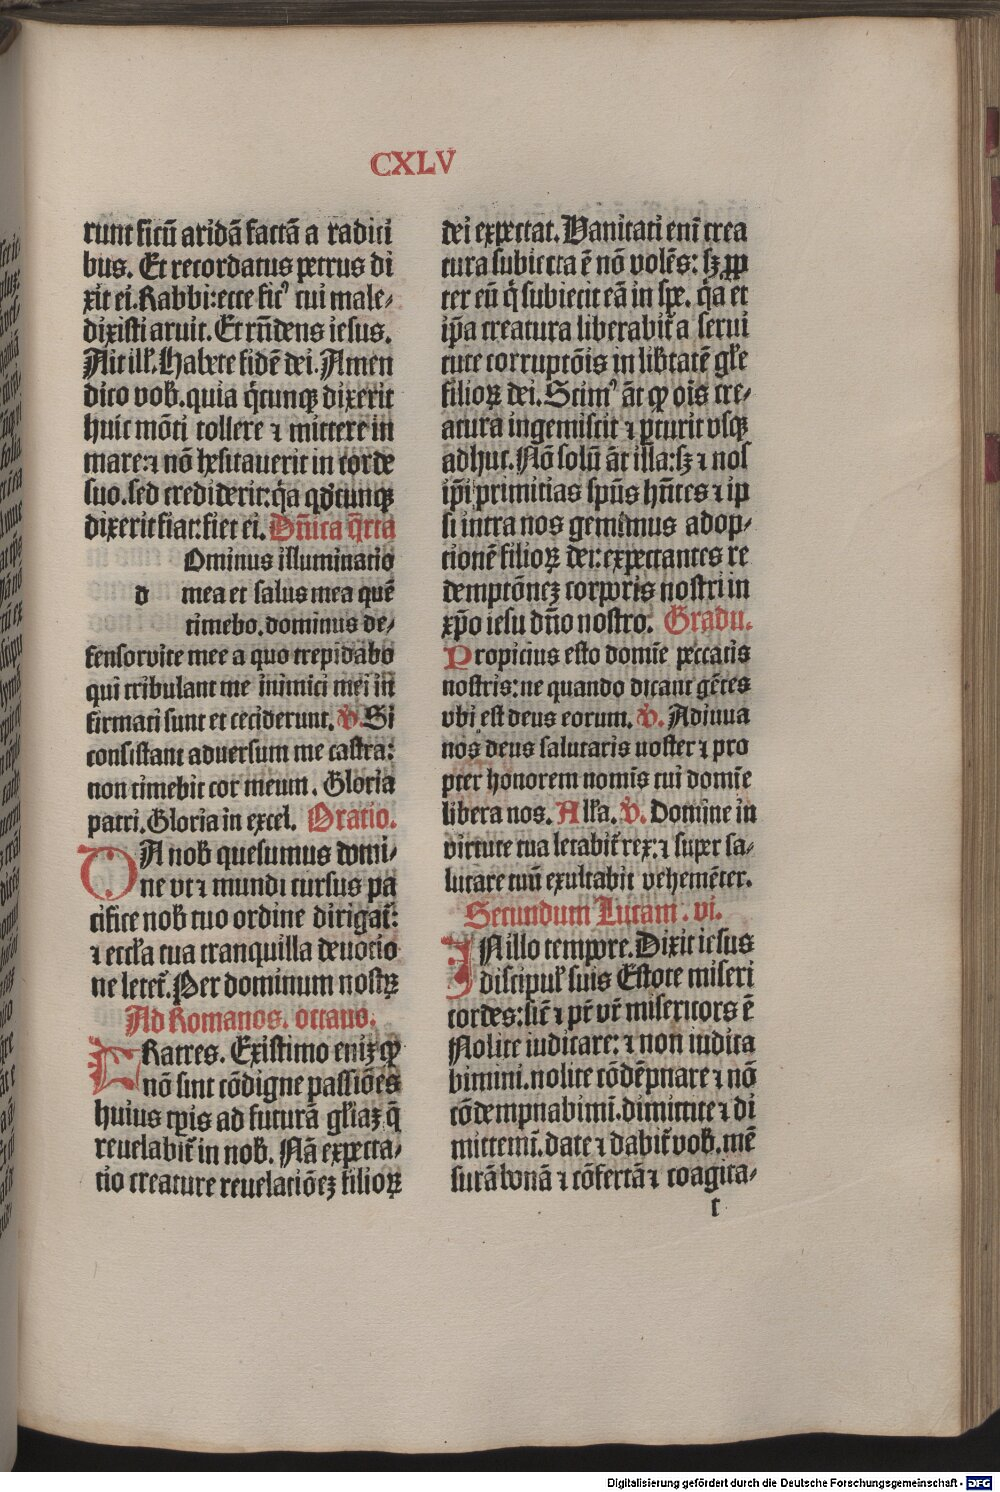 CXLV
runt ficū aridā factā a radici
bus. Et recordatus petrus di
xit ei. Rabbi: ecce ficꝰ cui male⸗
dixisti aruit. Et rñdens iesus.
Ait ill̕. Habete fidē dei. Amen
dico vob̕. quia q̇cunqꝫ dixerit
huic mōti tollere ⁊ mittere in
mare: ⁊ nō hesitauerit in corde
suo. sed crediderit: q̇a qd̕cunqꝫ
dixerit fiat: fiet ei. Dñica q̄rta
Ominus illuminatio
d mea et salus mea quē
timebo. dominus de⸗
fensor vite mee a quo trepidabo
qui tribulant me inimici mei in
firmati sunt et ceciderunt. V̕. Si
consistant aduersum me castra:
non timebit cor meum. Gloria
patri. Gloria in excel. Oratio.
DA nob̕ quesumus domi⸗
ne vt ⁊ mundi cursus pa
cifice nob̕ tuo ordine dirigat̕:
⁊ eccl̕a tua tranquilla deuotio
ne letet̕. Per dominum nostꝝ
Ad Romanos. octauo.
FRatres. Existimo eniꝫ ꝙ
nō sint cōdigne passiōes
huius tp̄is ad futurā gl̕iaꝫ q̄
reuelabit̕ in nob̕. Nā expecta⸗
tio creature reuelatiōeꝫ filioꝝ
dei expectat. Vanitati enī crea
tura subiecta ē nō volēs: sꝫ ꝓp
ter eū q̇ subiecit eā in spe. q̇a et
ip̄a creatura liberabit̕ a serui
tute corruptōis in lib̕tatē gl̕e
filioꝝ dei. Scimꝰ āt ꝙ oīs cre⸗
atura ingemiscit ⁊ ꝑturit vsqꝫ
adhuc. Nō solū āt illa: sꝫ ⁊ nos
ip̄i primitias sp̄us hñtes ⁊ ip
si intra nos gemimus adop⸗
tionē filioꝝ dei: expectantes re
demptōneꝫ corporis nostri in
xp̄o iesu dño nostro. Gradu.
Propicius esto domīe peccatis
nostris: ne quando dicant gētes
vbi est deus eorum. V̕. Adiuua
nos deus salutaris noster ⁊ pro
pter honorem nomīs tui domīe
libera nos. All̕a. V̕. Domine in
virtute tua letabit̕ rex: ⁊ super sa⸗
lutare tuū exultabit vehemēter.
Secundum Lucam. vi.
IN illo tempore. Dixit iesus
discipul̕ suis Estote miseri
cordes: sic̄ ⁊ pr̄ vr̄ misericors ē
Nolite iudicare: ⁊ non iudica
bimini. nolite cōdēpnare ⁊ nō
cōdempnabimī. dimittite ⁊ di
mittemī. date ⁊ dabit̕ vob̕. mē
surā bonā ⁊ cōfertā ⁊ coagita⸗
t
Digitalisierung gefördert durch die Deutsche Forschungsgemeinschaft - DFG